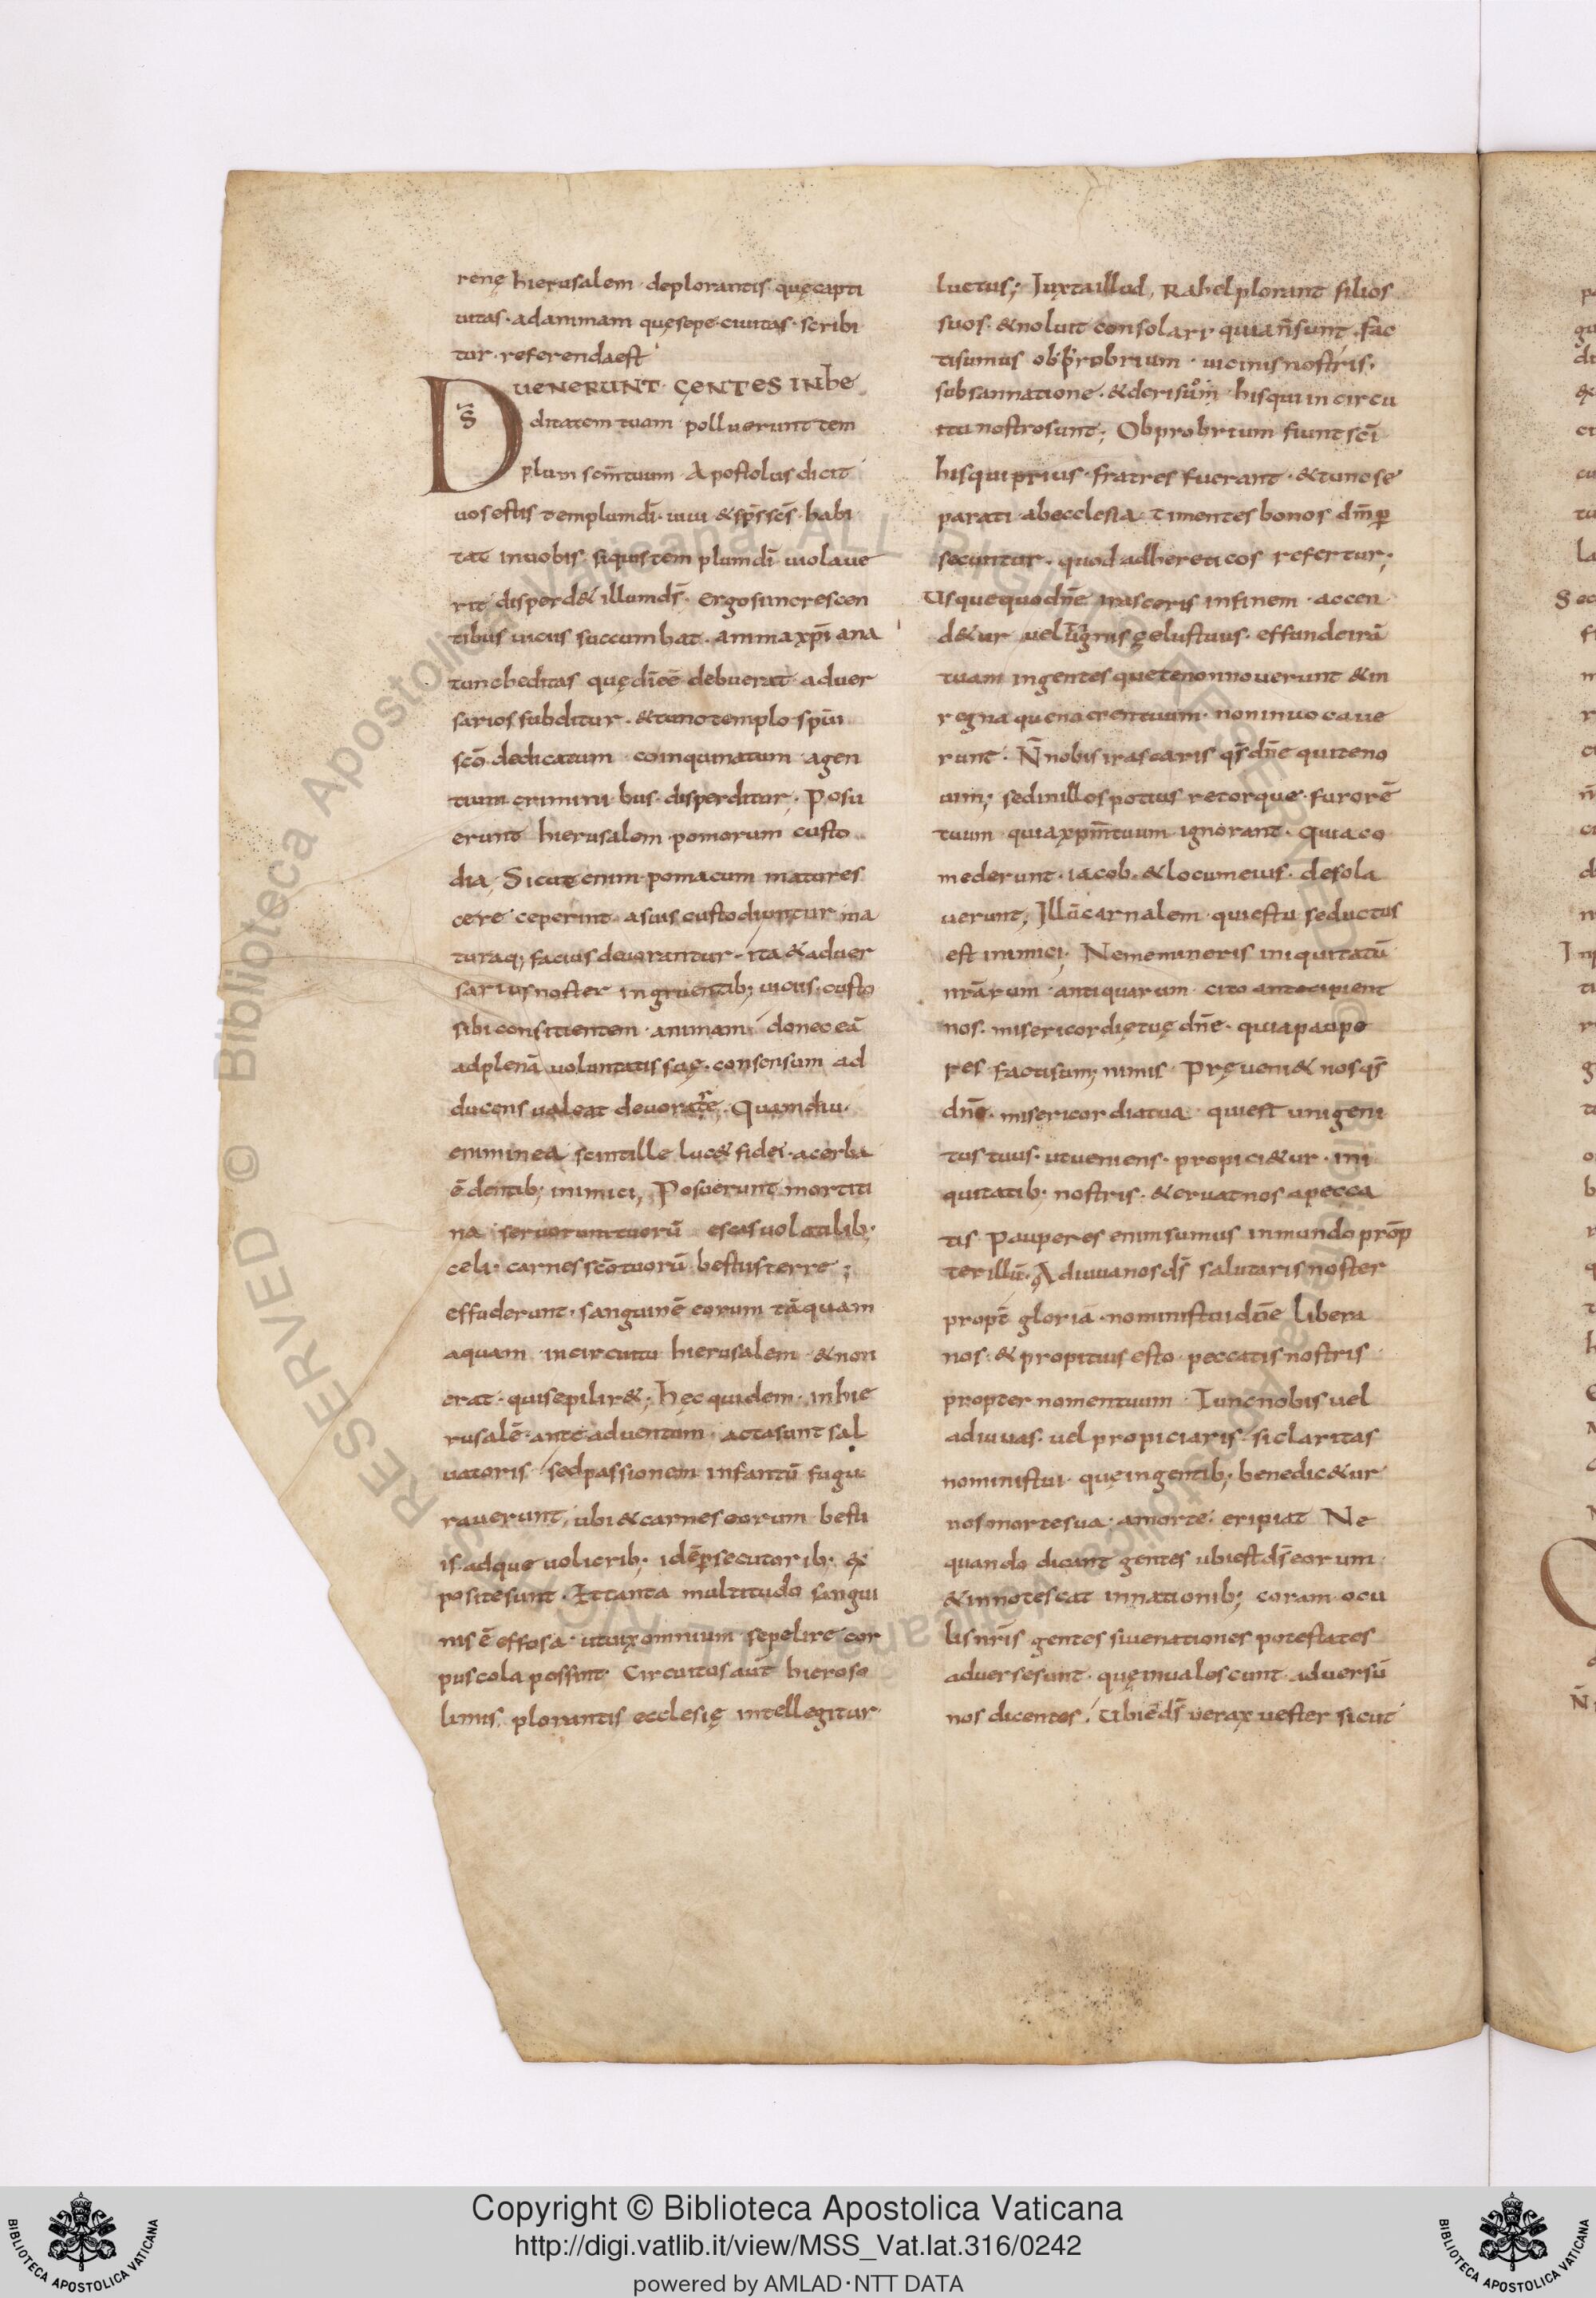 renę hierusalem · deplorantis · quęcapti
uitas · adanimam quęsepe · ciuitas · scribi
tur · referendaest
D̄S UENERUNT · GENTES INhE
ditatem tuam polluerunt tem
plum scm̄tuum · Apostolus dicit
uos estis templumdī · uiui &sp̄ssc̄s · habi
tat inuobis · siquistem plumdī uiolaue
rit disperd& illumds̄ · Ergosiincrescen
tibus uiciis succumbat · animaxp̄iana
tuncheditas quędic̄ē debuerat aduer
sarios subditur · &tunctemplo spūi
scō dedicatum coinquinatum agen
tium crimini bus · disperditur · Posu
erunt hierusalem pomorum custo
dia, Sicut enim pomacum matures
cere ceperint asuis custodiuntur ma
turaq; facius deuorantur · ita & aduer
sarius noster ingruentib; uiciis · custo
sibi consitientem animam donec eā
adplenā uoluntatis sūę · consensum ad
ducens ualeat deuorare · Quamdiu ·
enim inea scintille luc& fidei · acerba
ē dentib; inimici, Posuerunt mortiti
na seruorumtuorū escas uolatilib;
celi · carnes scōtuorū bestiisterre ;
effuderunt · sanguinē eorum tāquam
aquam incircuitu hierusalem &non
erat · quisepilir& · hęc quidem · inhie
rusalē · ante aduentum · actasunt sal
uatoris sedpassionem infantū figu
rauerunt, ubi &carnes eorum besti
is adque uolicrib; idēpsecutorib; ex
positesunt · Ettanta multitudo sangui
nis ē effosa · utuixomnium sepelire cor
puscola possint Circuitus aūt hieroso
limis plorantis ecclesię intellegitur
luctus; Iuxtaillud, Rahelplorant filios
suos · &noluit consolari quian̄sunt · fac
tisumus obprobrium · uicinisnostris ·
subsannatione · &derisum hisqui in circu
itu nostrosunt; Obprobrium fiunt scī
hisquiprius · fratres fuerant · &tuncse
parati abecclesia · timentes bonos dm̄p
secuntur · quod adhereticos refertur;
Usquequodn̄e irasceris infinem · accen
d&ur uelignis zelustuus · effundeirā
tuam ingentes quetenonnouerunt &in
regna quenocrentuum · noninuocaue
runt · N̄ nobis irascaris qs̄dn̄e quiteno
uim; sedinillospotius retorque · furorē
tuum quiaxpm̄tuum ignorant · quiaco
mederunt · iacob · &locumeius · desola
uerunt, Illūcarnalem quiestu seductus
est inimici · Nememineris iniquitatū
nrārum · antiquarum · cito antecipient
nos · misericordiętuę dn̄e · quiapaupe
res factisum; nimis Pręueni& nosqs̄
dnē · misericordiatua quiest unigeni
tus tuus · utueniens · propici&ur · ini
quitatib; nostris · &eruatnos apecca
tis Pauperes enimsumus inmundo prop̄
terillū · Adiuuanosds̄ salutarisnoster
propt̄ gloriā · noministuidn̄e libera
nos · &propitius esto peccatis nostris ·
propter nomentuum · Tuncnobis uel
adiuuas · uel propiciaris · siclaritas
noministui · queingentib; benedic&ur
nosmortesua · amorte · eripiat Ne
quando dicant gentes ubiestds̄eorum ·
&innotescat innationib; coram ocu
lisnrīs gentes siuenationes potestates
aduersesunt · quęinualescunt aduersū
nos dicentes · Ubiēds̄ uerax uester sicut